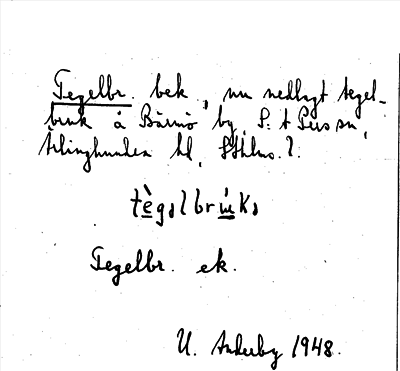 Tegelbr. bek., nu nedlagt tegel-
bruk å Bärnö by, S:t Perss sn,
Ärlinghundra hd, Sthlms. l.
tè̱gəlbrú̱kə
Tegelbr. ek.
U. Anderby 1948.